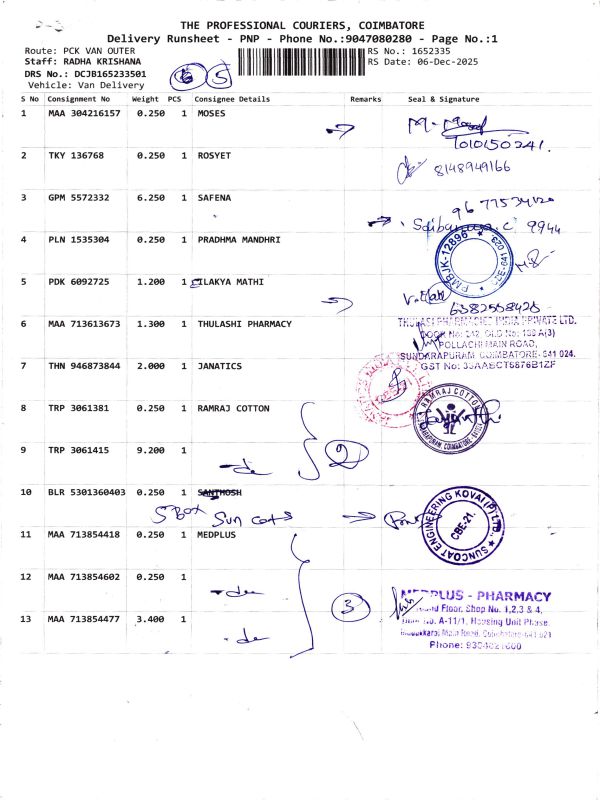 THE PROFESSIONAL COURIERS, COIMBATORE
Delivery Runsheet - PNP - Phone No.:9047080280 - Page No.:1
Route: PCK VAN OUTER
RS No.: 1652335
Staff: RADHA KRISHANA
RS Date: 06-Dec-2025
DRS No.: DCJB165233501
Vehicle: Van Delivery
5
S No Consignment No Weight PCS Consignee Details Remarks Seal & Signature
1 MAA 304216157 0.250 1 MOSES
1010150241.
2 TKY 136768 0.250 1 ROSYET
8148949166
3 GPM 5572332 6.250 1 SAFENA
9944
4 PLN 1535304 0.250 1 PRADHMA MANDHRI
PMBJK-12896
5 PDK 6092725 1.200 1 ILAKYA MATHI
6 MAA 713613673 1.300 1 THULASHI PHARMACY
POLLACHI MAIN ROAD,
SUNDARAPURAM COIMBATORE-641 024.
7 THN 946873844 2.000 1 JANATICS
8 TRP 3061381 0.250 1 RAMRAJ COTTON
RAMRAJ COTTON
9 TRP 3061415 9.200 1
-do
2
10 BLR 5301360403 0.250 1 SANTHOSH
5 Box Sun Cots
SUNCOAT ENGINEERING KOVAI (P) LTD.
CBE-21.
11 MAA 713854418 0.250 1 MEDPLUS
12 MAA 713854602 0.250 1
-do
3
MEDPLUS - PHARMACY
Floor, Shop No. 1,2,3 & 4,
No. A-11/1, Housing Unit Phase,
13 MAA 713854477 3.400 1
-do
Phone: